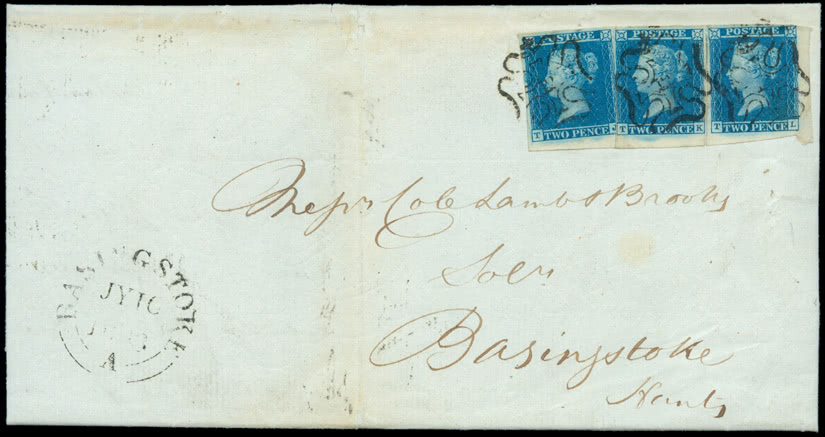 POSTAGE POSTAGE POSTAGE
T TWO PENCE J T TWO PENCE K T TWO PENCE L
Messrs Cole Lamb & Brooks
Solrs
Basingstoke
Hants
BASINGSTOKE
JY 10
A